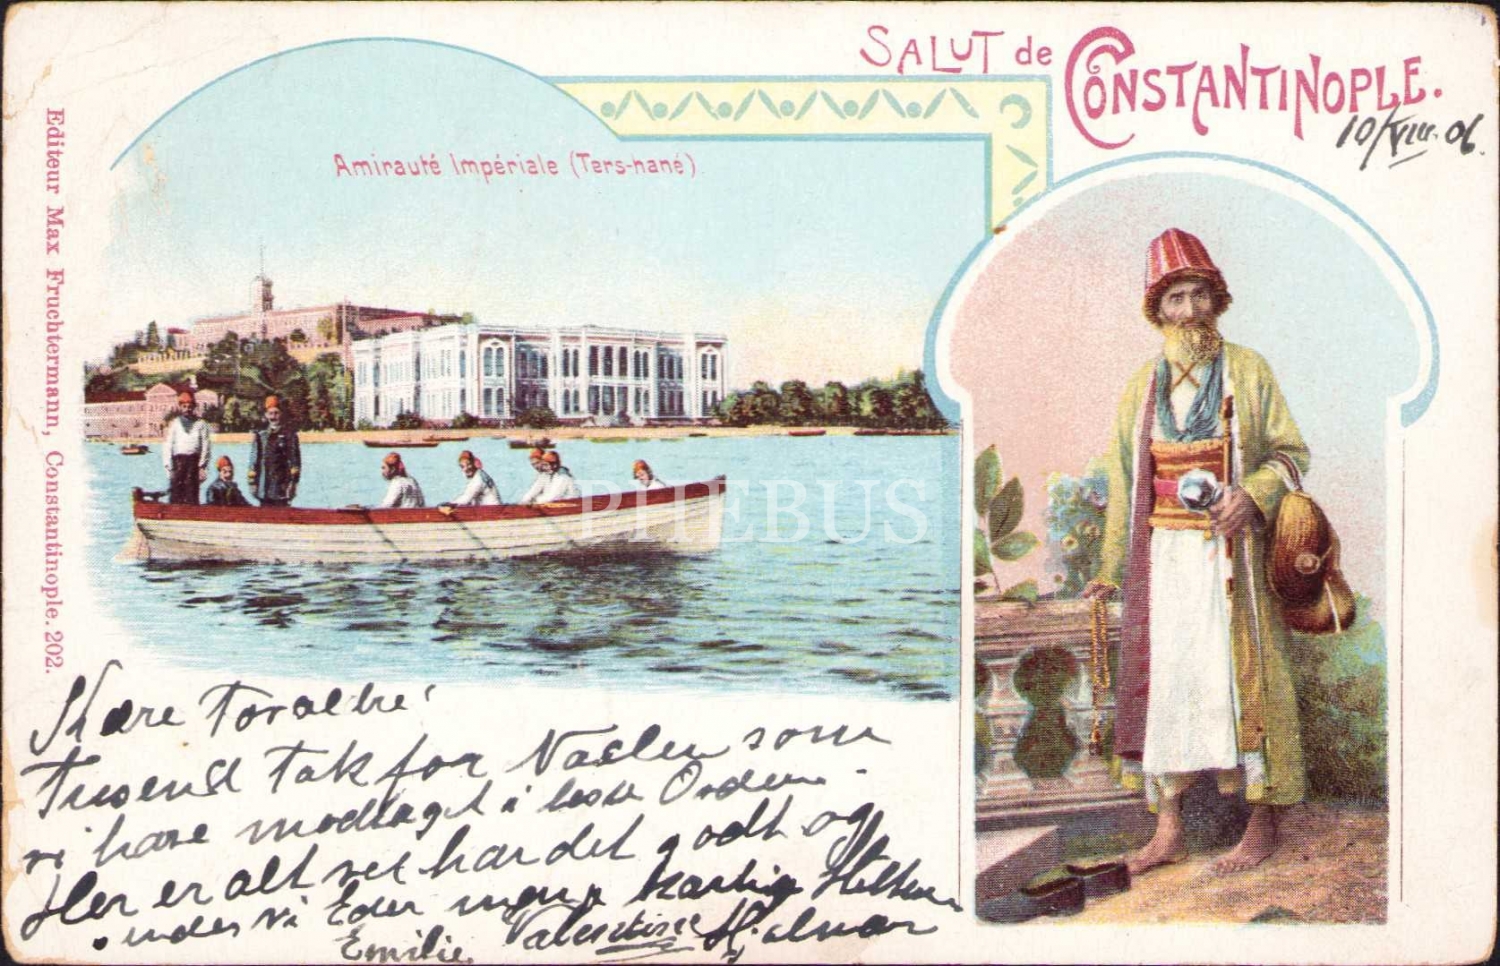 SALUT de CONSTANTINOPLE.
10/VIII. 06.
Amirauté Impériale (Ters-hané)
Editeur Max Fruchtermann, Constantinople. 202.
PHEBUS
Kære
Tusend Tak for som
vi have modtaget i beste Orden.
Her er alt vel har det godt og
Eder mange
Emilie Valentine Hjalmar